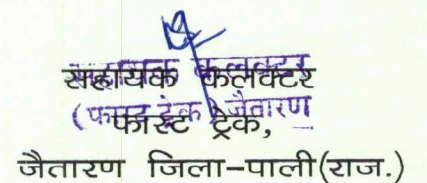 सहायक कलक्टर
(फास्ट ट्रेक) जैतारण
सहायक कलक्टर
फास्ट ट्रेक,
जैतारण जिला-पाली(राज.)